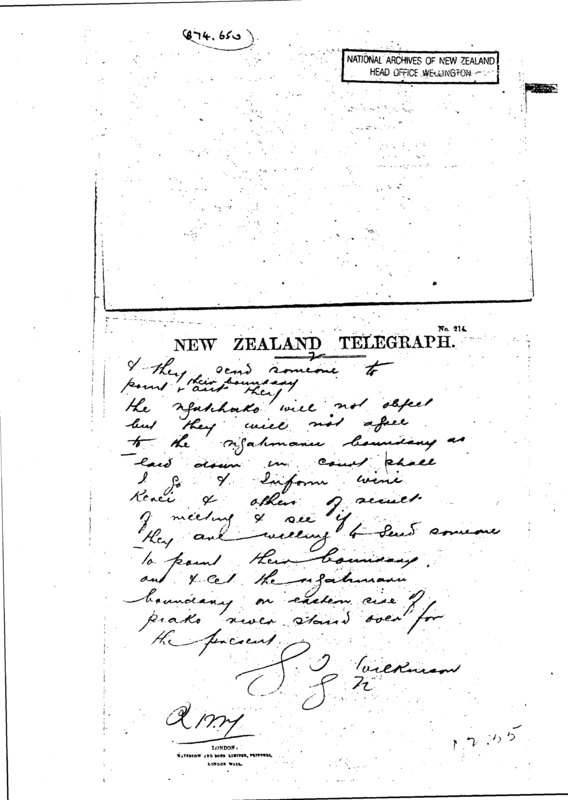 (874.650)
NATIONAL ARCHIVES OF NEW ZEALAND
HEAD OFFICE WELLINGTON
No. 214.
NEW ZEALAND TELEGRAPH.
2
& they send someone to
their boundary
point out they
the will not object
but they will not agree
to the ngahmanu boundary as
laid down in court shall
I go & Inform wini
Kerei & others of result
of meeting & see if
they are willing to send someone
to point their boundary
out & let the ngahmanu
boundary on eastern side of
piako river stand over for
the present
Wilkinson
LONDON:
WATERLOW AND SONS LIMITED, PRINTERS,
LONDON WALL.